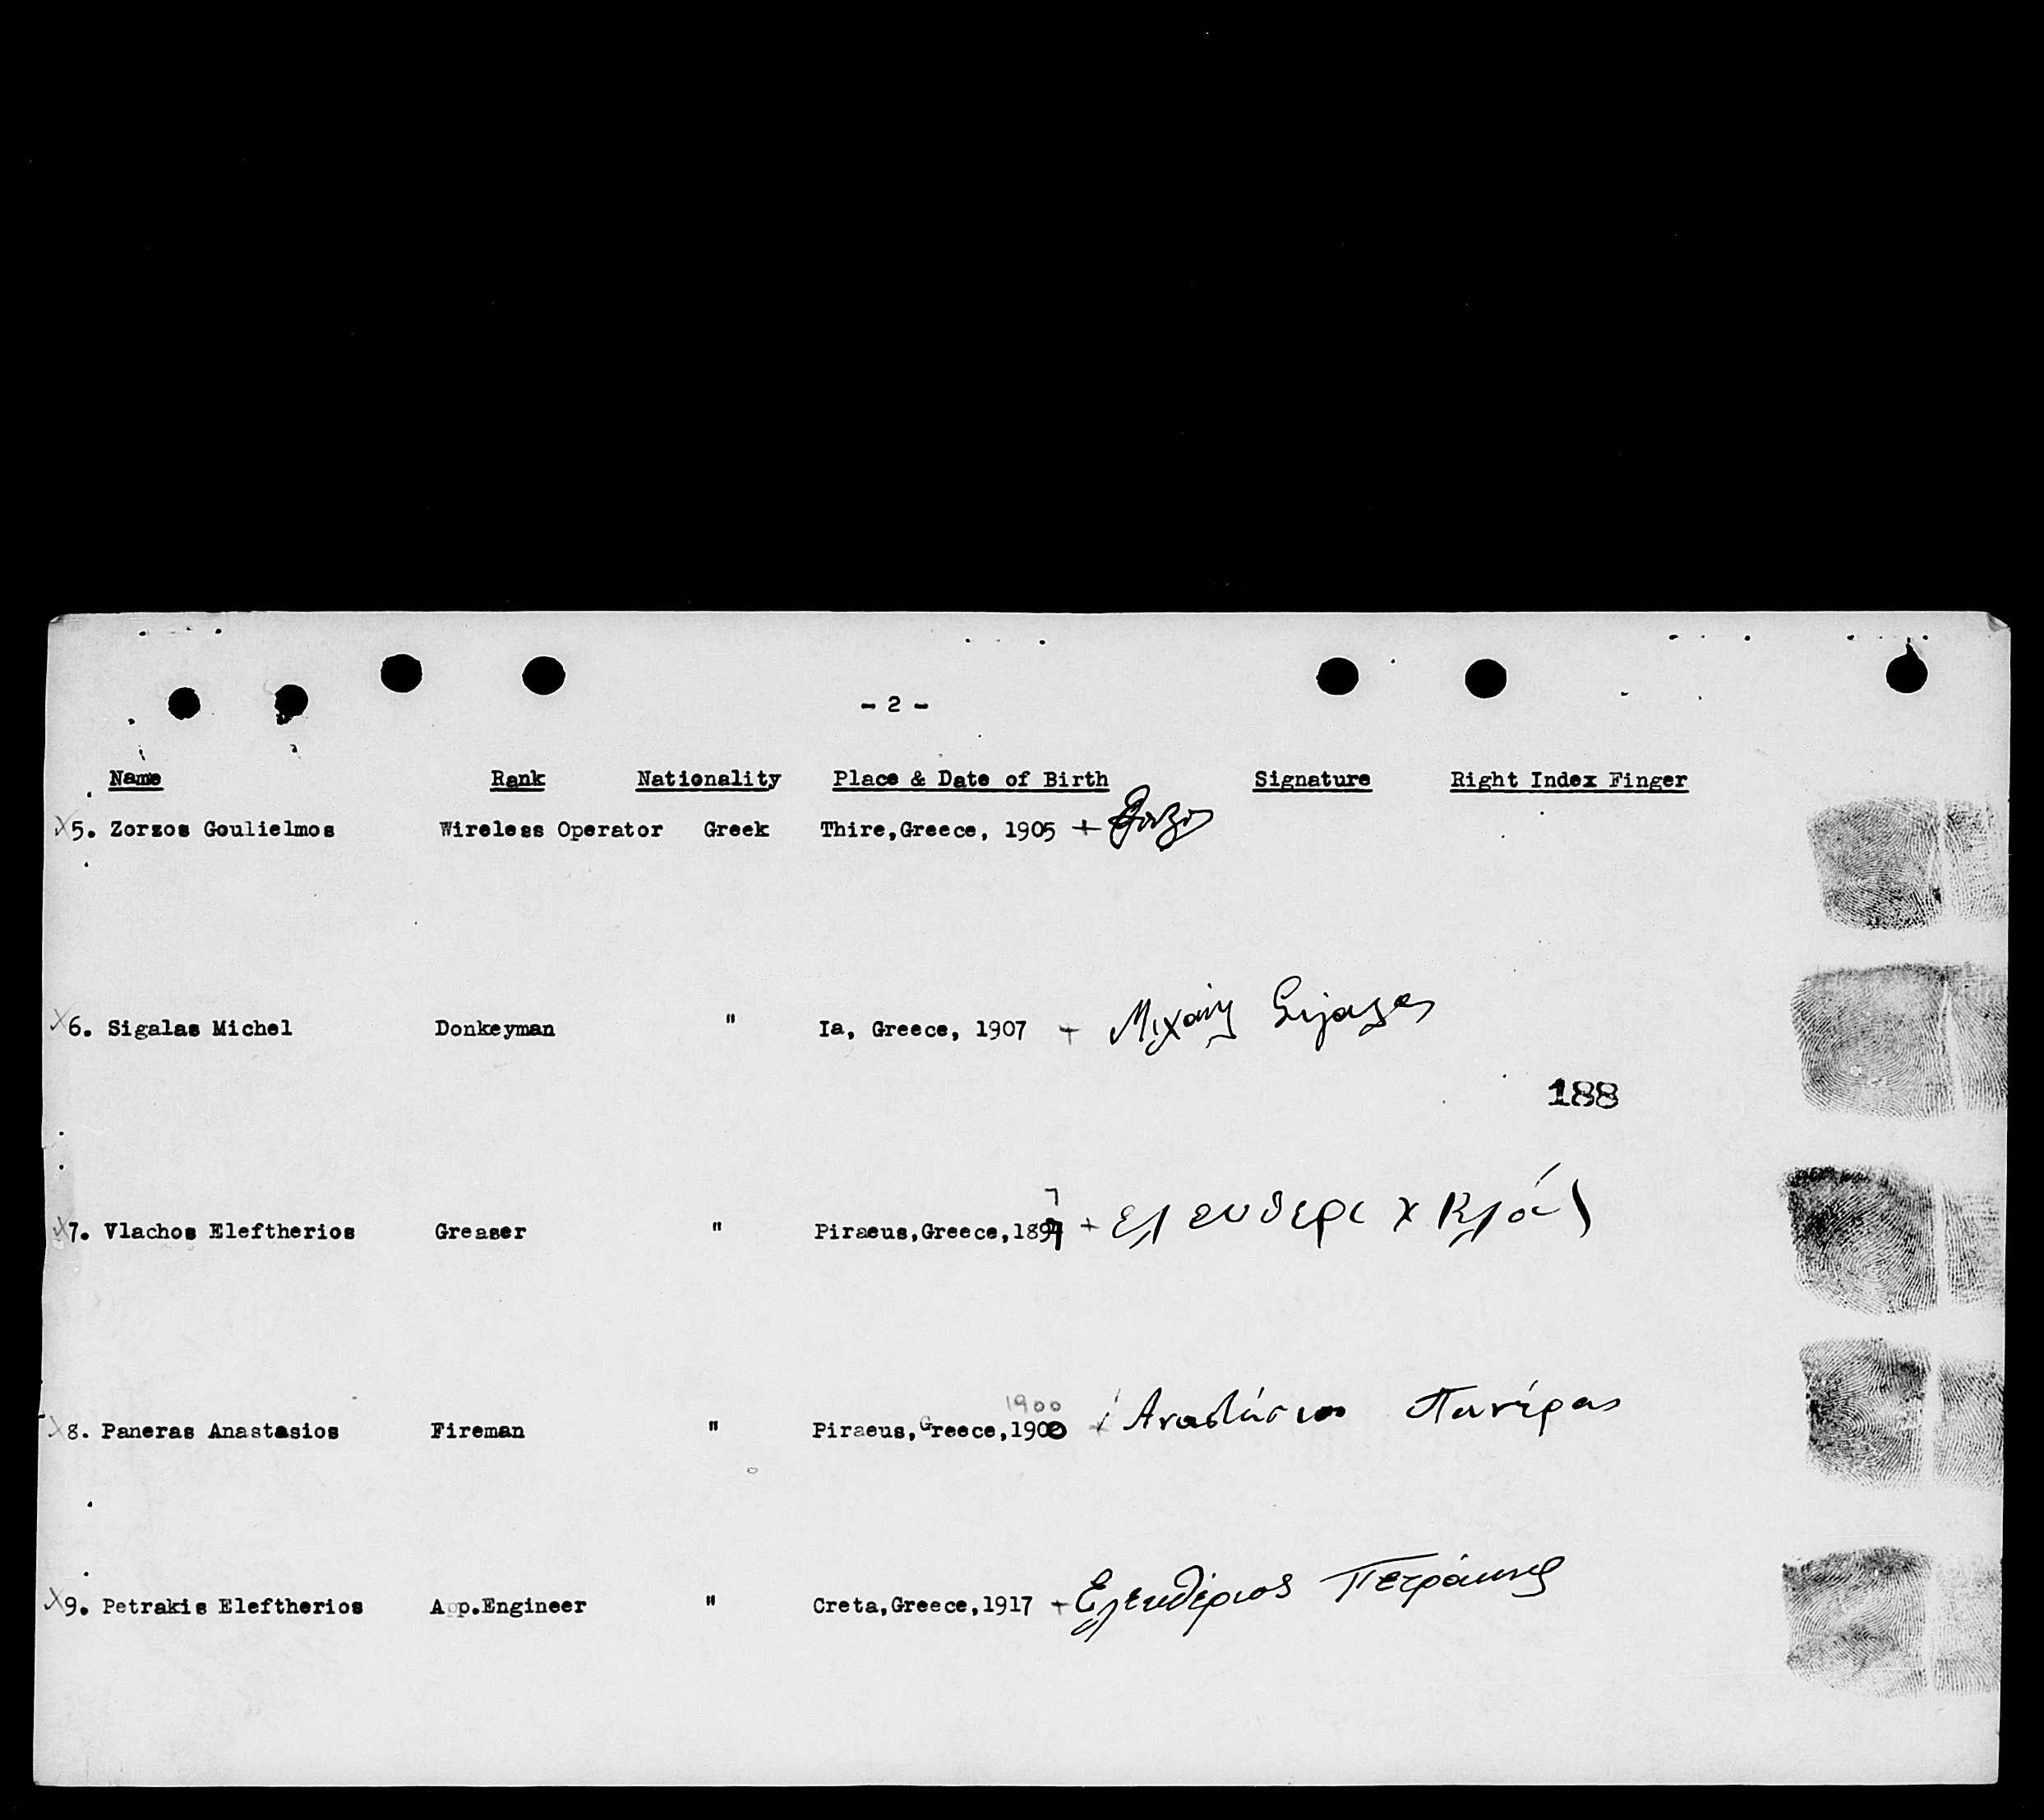 - 2 -
Name Rank Nationality Place & Date of Birth Signature Right Index Finger
5. Zorzos Goulielmos Wireless Operator Greek Thire,Greece, 1905 +
6. Sigalas Michel Donkeyman " Ia, Greece, 1907 + Μιχαήλ Σιγάλας
188
7
7. Vlachos Eleftherios Greaser " Piraeus,Greece,1897 +
1900
8. Paneras Anastasios Fireman " Piraeus,Greece,1900 + Αναστάσιος Πανέρας
9. Petrakis Eleftherios App.Engineer " Creta,Greece,1917 + Ελευθέριος Πετράκης